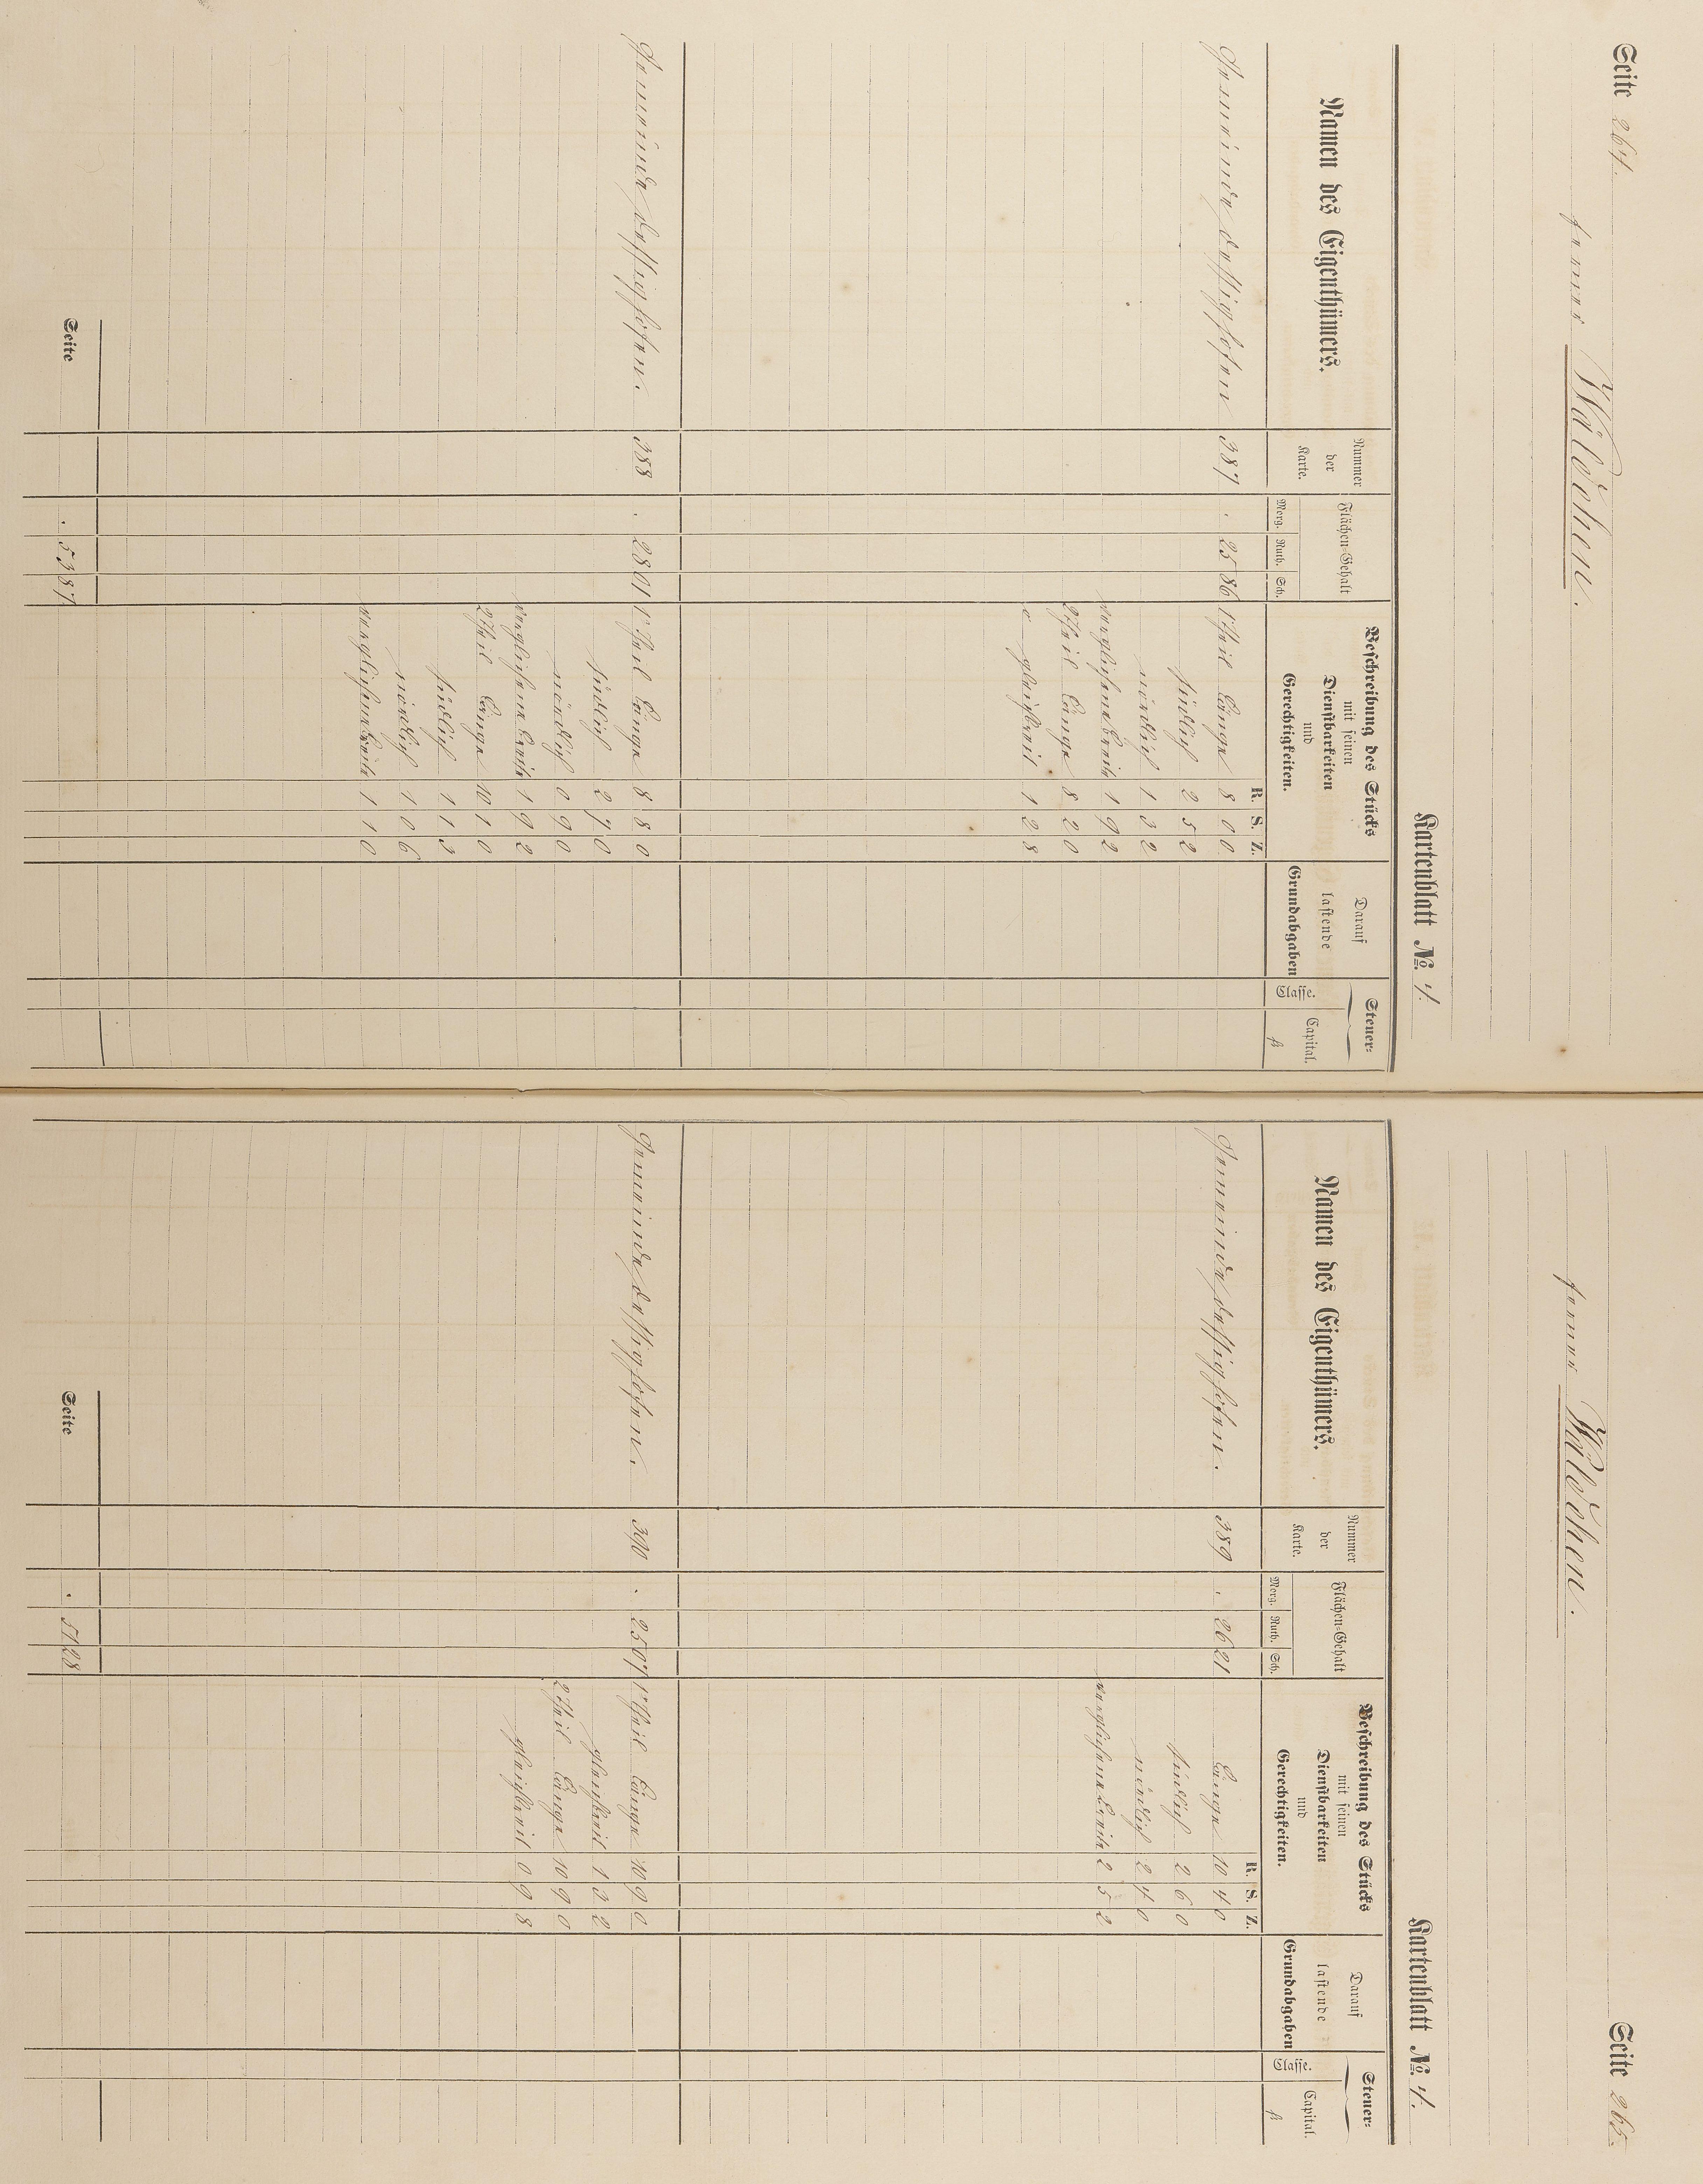 Seite 264.
ferner Wäldchen.
Kartenblatt No. 4.
Namen des Eigenthümers.
Nummer der Karte.
Flächen-Gehalt
Morg. Ruth. Sch.
Beschreibung des Stücks
mit seinen
Dienstbarkeiten
und
Gerechtigkeiten.
R. S. Z.
Darauf
lastende
Grundabgaben
Steuer-
Classe. Capital.
fl
Gemeinde Dessighofen 387 . 25 86 1 Theil Länge 8 0 0
südlich 2 5 2
nördlich 1 3 2
verglichene Breite 1 9 2
2 Theil Länge 8 2 0
gleichbreit 1 2 8
Gemeinde Dessighofen. 388 . 28 01 1 Theil Länge 8 8 0
südlich 2 9 0
nördlich 0 9 0
verglichene Breite 1 9 2
2 Theil Länge 10 1 0
südlich 1 1 3
nördlich 1 0 6
verglichene Breite 1 1 0
Seite . 53 87
Seite 265.
ferner Wäldchen.
Kartenblatt No. 4.
Namen des Eigenthümers.
Nummer der Karte.
Flächen-Gehalt
Morg. Ruth. Sch.
Beschreibung des Stücks
mit seinen
Dienstbarkeiten
und
Gerechtigkeiten.
R. S. Z.
Darauf
lastende
Grundabgaben
Steuer-
Classe. Capital.
fl
Gemeinde Dessighofen. 389 . 26 21 Länge 10 4 0
südlich 2 6 0
nördlich 2 4 0
verglichene Breite 2 5 2
Gemeinde Dessighofen. 390 . 25 07 1 Theil Länge 10 9 0
gleichbreit 1 3 2
2 Theil Länge 10 9 0
gleichbreit 0 9 8
Seite . 51 28